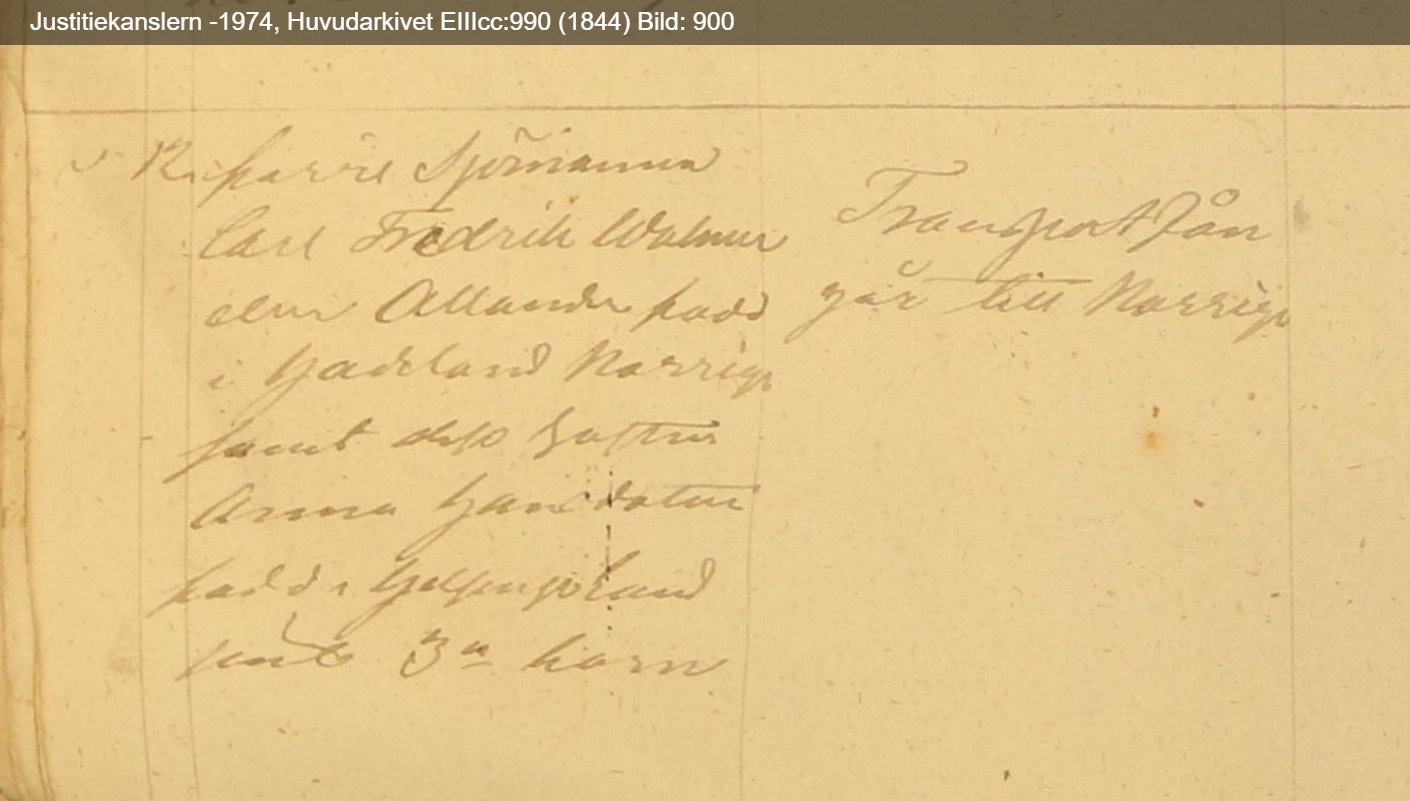 Justitiekanslern -1974, Huvudarkivet EIIIcc:990 (1844) Bild: 900
12. Sjömannen
Carl Fredrik Walmer
eller Allander född
i Norrige
samt dess hustru
Anna Hansdotter
född i Helsingeland
samt 3ne barn
Transport från
går till Norrige